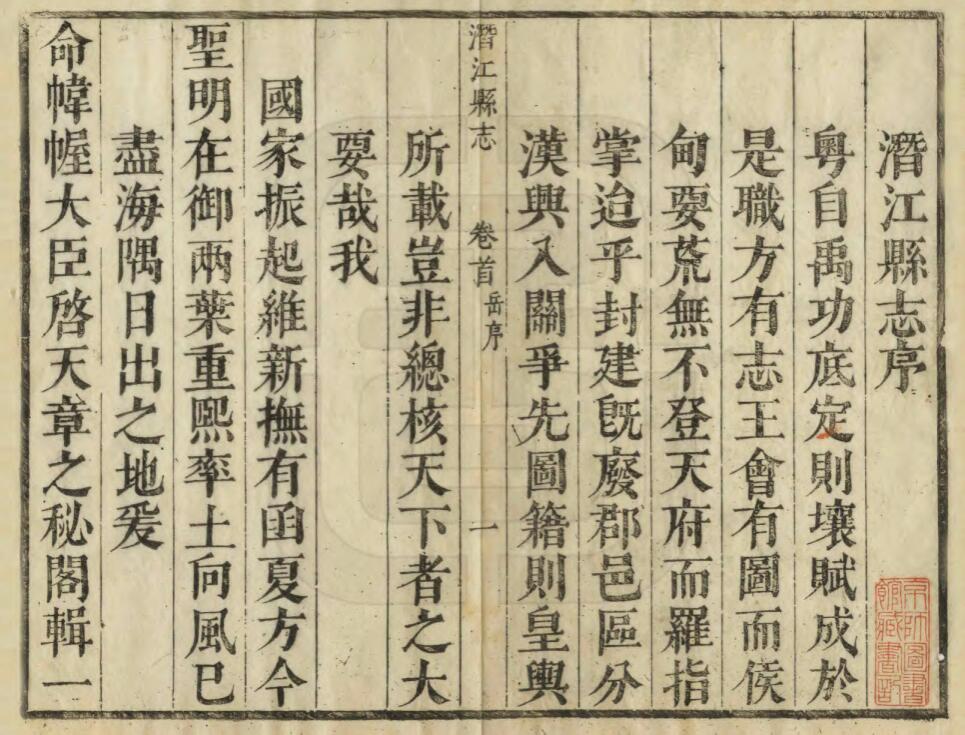 潛江縣志序
粤自禹功底定則壤賦成於
是職方有志王會有圖而侯
甸要荒無不登天府而羅指
掌迨乎封建旣廢郡邑區分
漢興入關爭先圖籍則皇輿
潛江縣志 卷首 岳序 一
所載豈非總核天下者之大
要哉我
國家振起維新撫有函夏方今
聖明在御兩葉重熙率土向風已
盡海隅日出之地爰
命幃幄大臣啓天章之秘閣輯一